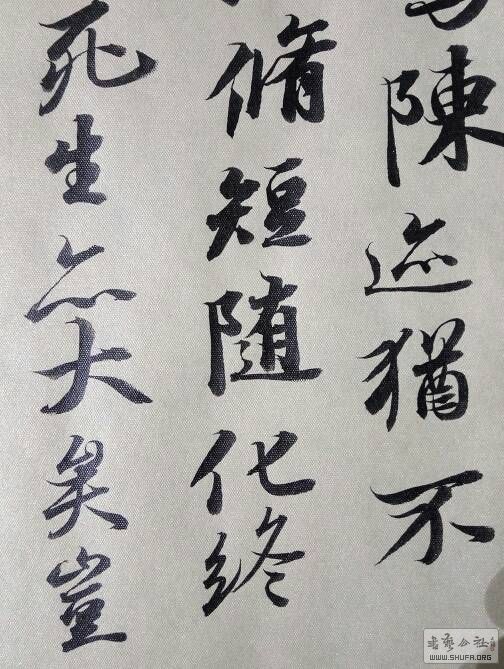 陳迹猶不
脩短随化終
死生亦大矣豈
書艺公社
WWW.SHUFA.ORG